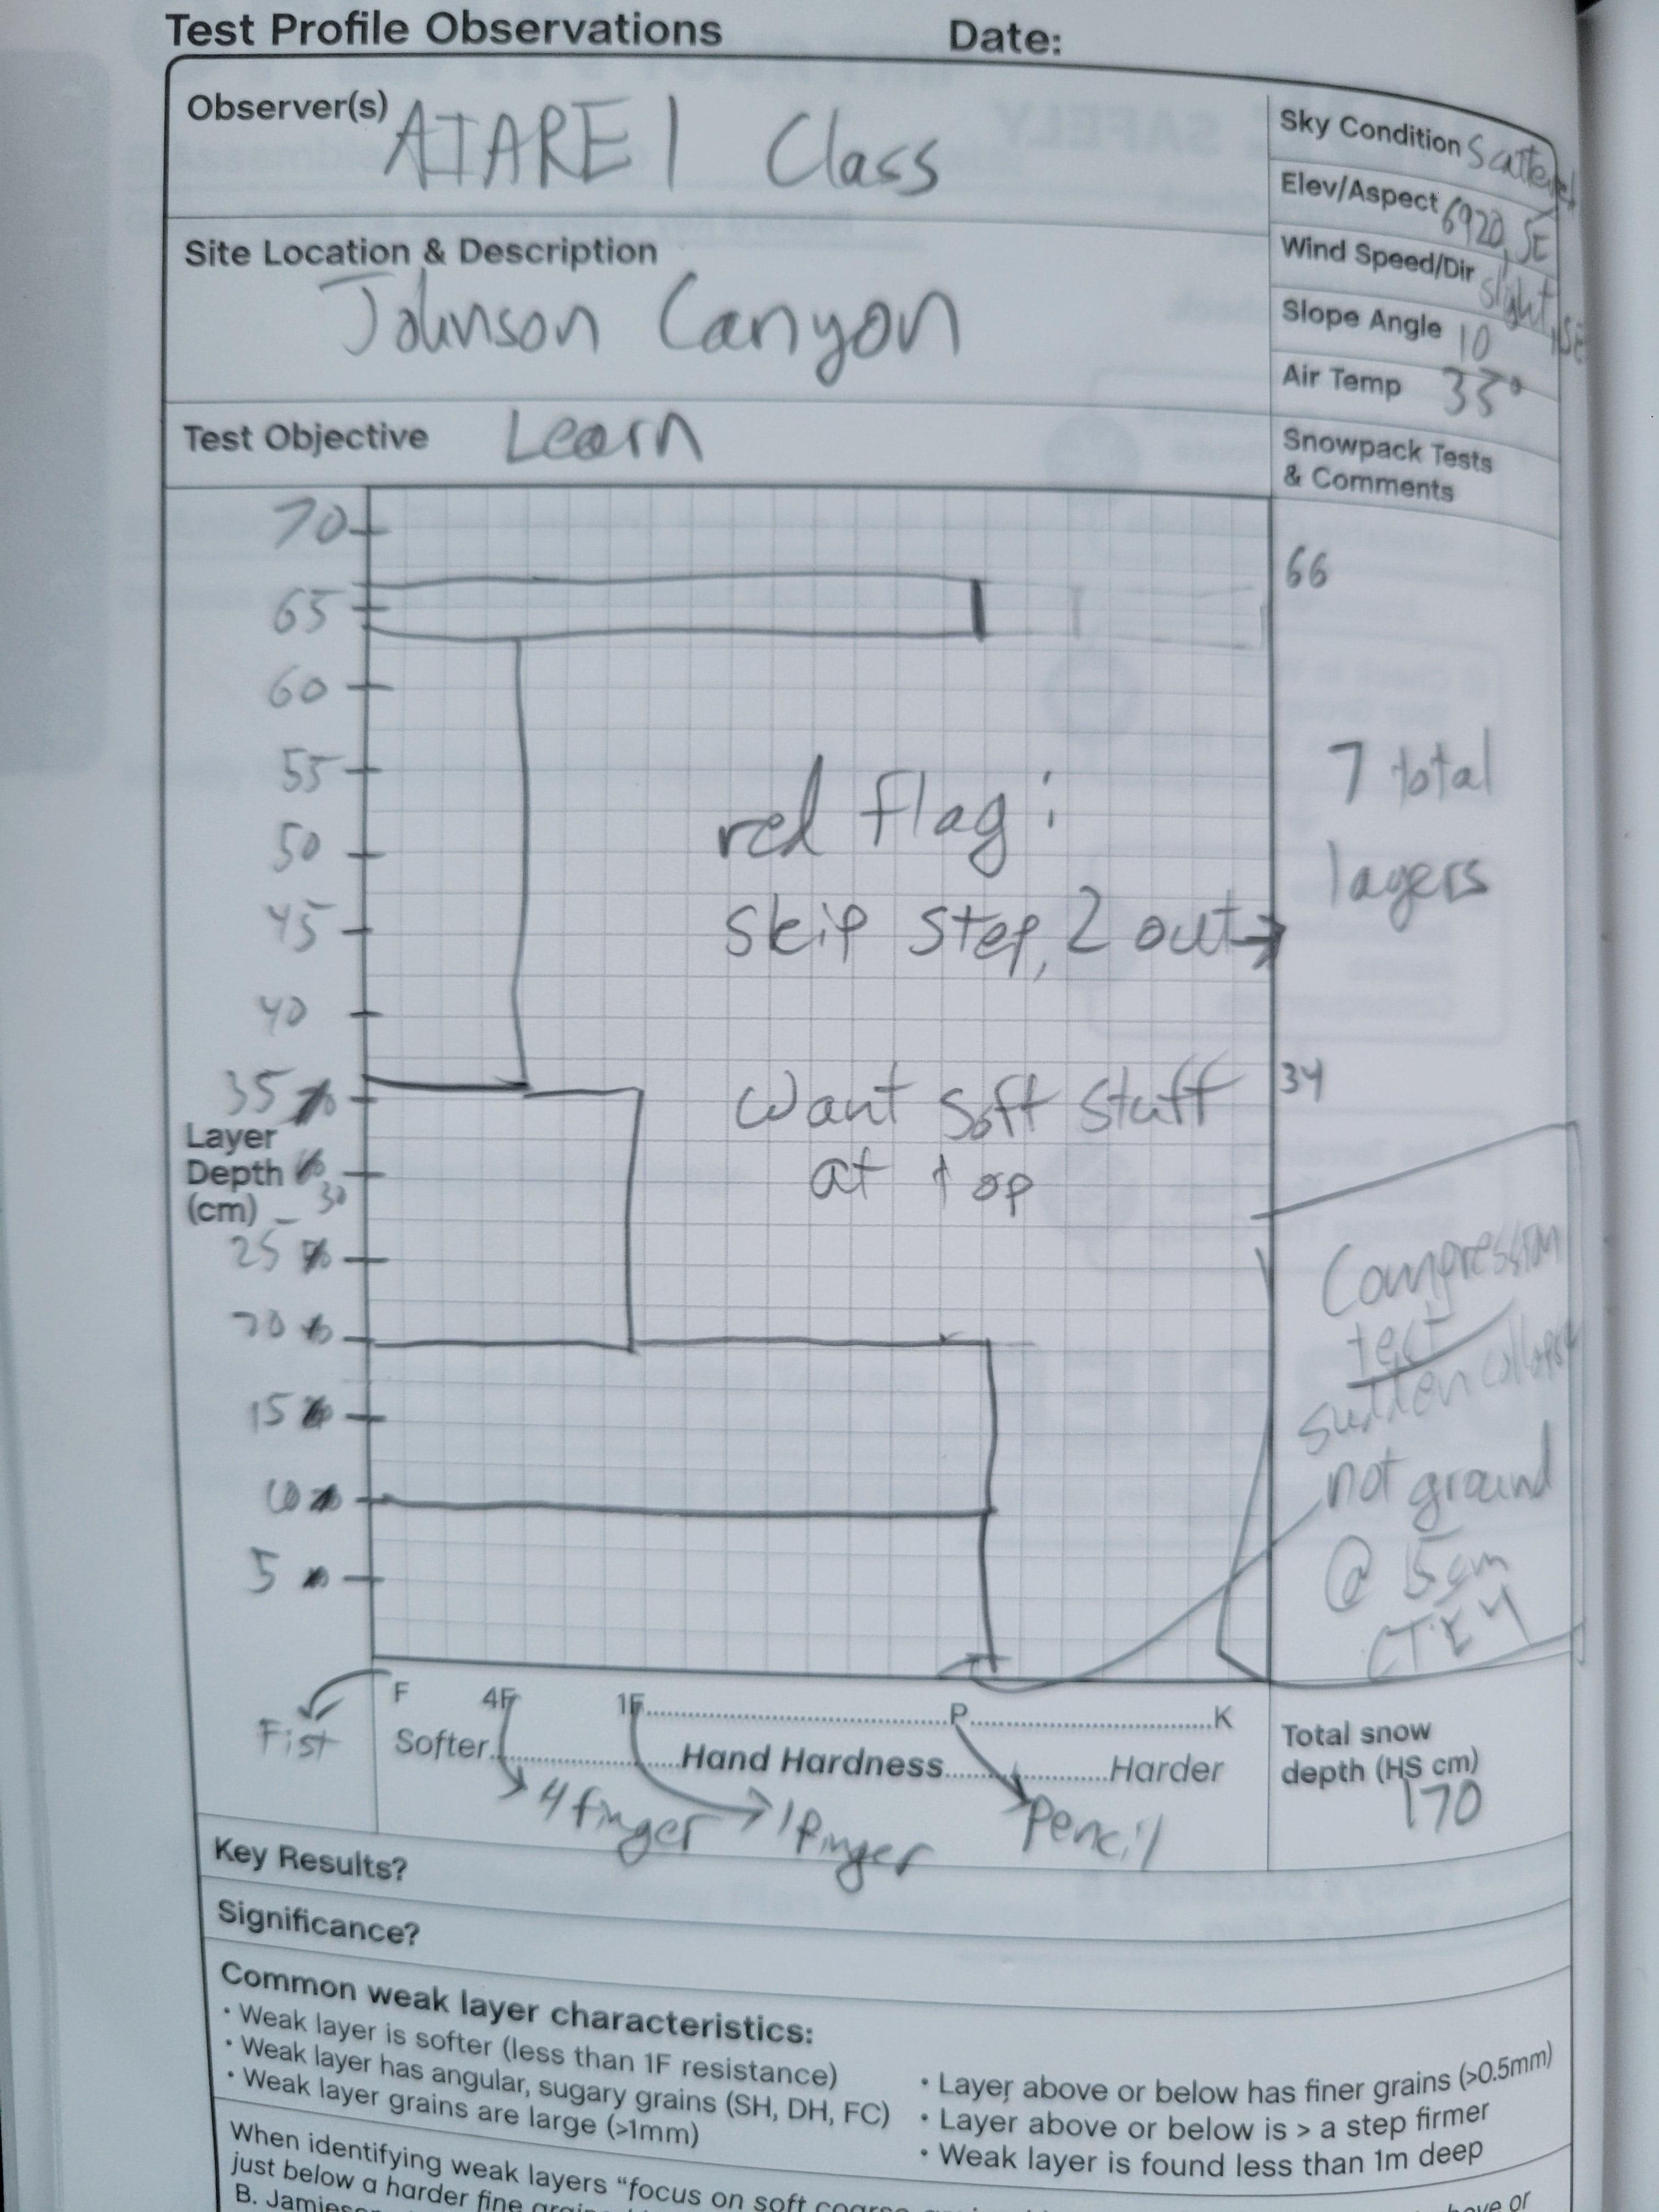 Test Profile Observations Date:
Observer(s) AIARE 1 Class
Sky Condition Scattered
Elev/Aspect 6920, SE
Site Location & Description
Johnson Canyon
Wind Speed/Dir slight, SE
Slope Angle 10
Air Temp 33°
Test Objective Learn
Snowpack Tests
& Comments
70
66
65
60
55
7 total
layers
red flag:
50
45
skip step, 2 out →
40
35
34
want soft stuff
at top
Layer
Depth
(cm)
30
25
20
15
10
5
Compression
test
sudden collapse
not ground
@ 5cm
CTE 4
F 4F 1F P K
Fist
Softer Hand Hardness Harder
4 finger 1 finger Pencil
Total snow
depth (HS cm)
170
Key Results?
Significance?
Common weak layer characteristics:
• Weak layer is softer (less than 1F resistance)
• Weak layer has angular, sugary grains (SH, DH, FC)
• Weak layer grains are large (>1mm)
• Layer above or below has finer grains (>0.5mm)
• Layer above or below is > a step firmer
• Weak layer is found less than 1m deep
When identifying weak layers "focus on soft
just below a harder fine
B.